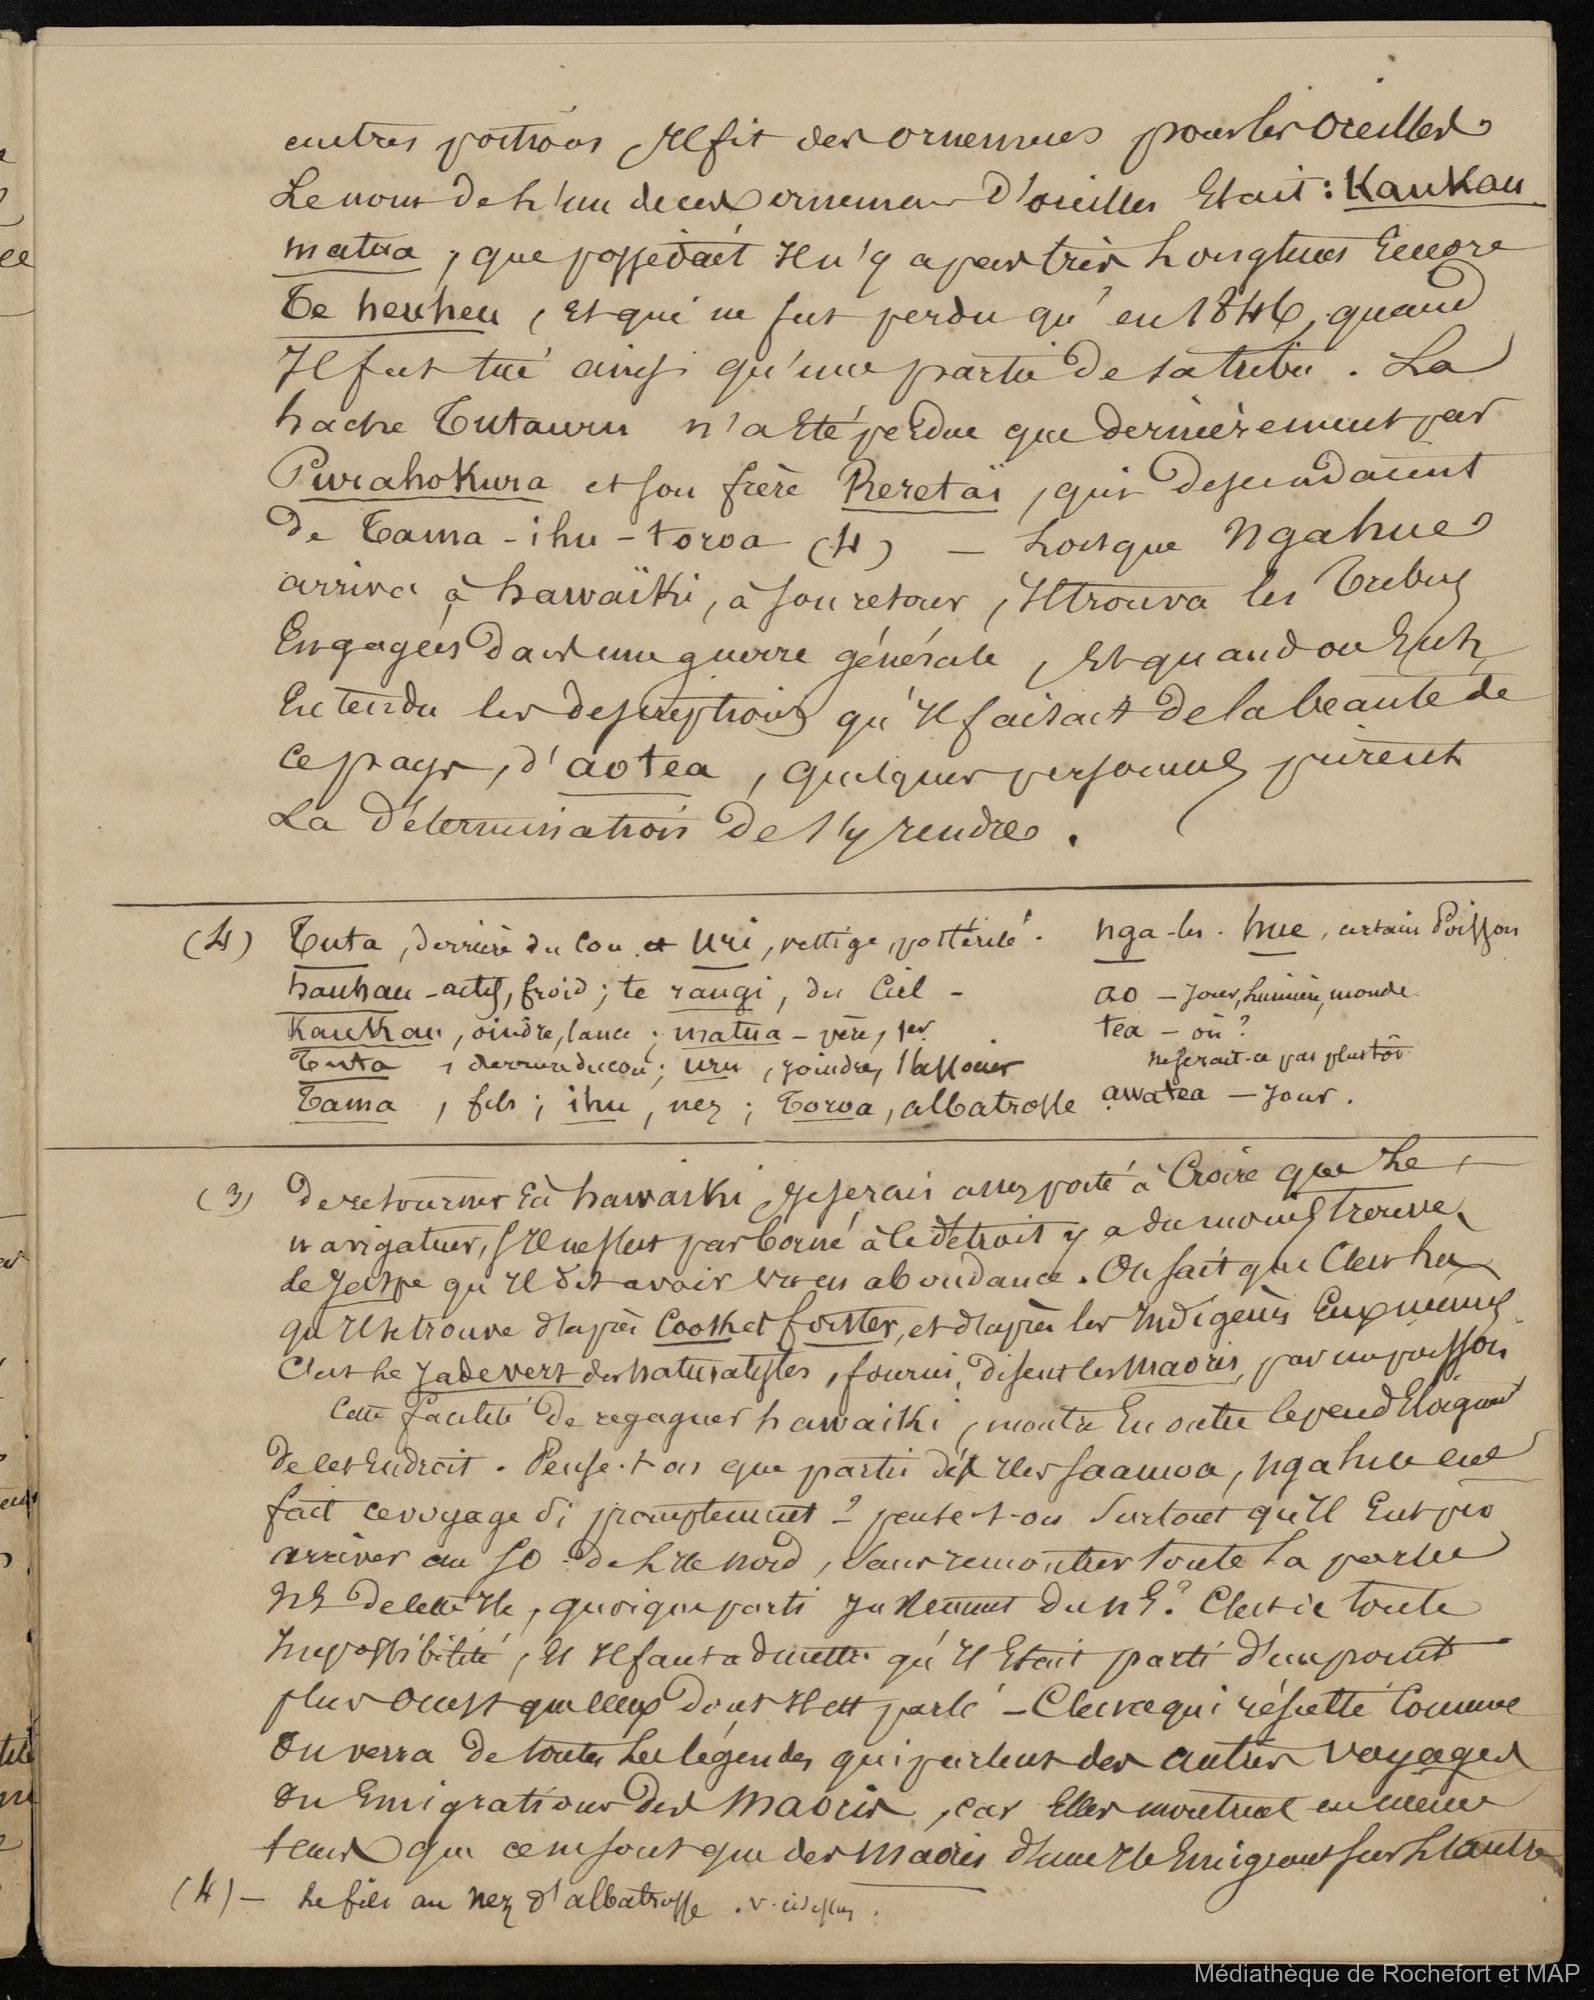 autres portions Il fit des ornemens pour les oreilles
Le nom de l'un de ces ornemens d'oreilles Etait : Kaukau
matua, que possédait Il n'y a pas très Longtems Encore
Te heuheu, Et qui ne fut perdu qu'en 1846, quand
Il fut tué ainsi qu'une partie de sa tribu. La
hache Tutauru n'a Eté perdue que dernièrement par
Purahokura et son frère Reretaï, qui descendaient
de Tama-ihu-toroa (4) — Lorsque Ngahue
arriva à hawaïki, à son retour, Il trouva les Tribus
Engagées dans une guerre générale, Et quand on Eut
Entendu les descriptions qu'Il faisait de la beauté de
ce pays, d'aotea, quelques personnes prirent
La détermination de s'y rendre.
(4) Tuta, derrière du Cou et Uri, vestige, postérité. nga-les. hue, certain Poisson
hauhau - actif, froid; te rangi, du Ciel - ao - Jour, Lumière, monde
Kaukau, oindre, lance; matua - père, tea - où?
Tuta, derrière du cou; uru, joindre, s'associer ne serait-ce pas plustôt
Tama, fils; ihu, nez; Toroa, albatrosse awatea - Jour.
(3) de retourner à hawaiki, Je serais assez porté à Croire que Le
navigateur, s'Il ne s'est pas borné à le détroit y a du moins trouvé
le Jaspe qu'Il dit avoir vu en abondance. On sait que C'est là
qu'Il se trouve d'après Cook et forster, et d'après les Indigènes Eux mêmes
C'est Le Jade vert des naturalistes, fourni, disent les maoris, par un poisson
Cette facilité de regagner hawaiki, montre En outre le peu d'Eloignement
de cet Endroit. Pense-t-on que parti des Iles Saamoa, ngahue eut
fait ce voyage si promptement? pense-t-on Surtout qu'Il Eut pu
arriver au SO de L'Ile nord, sans remonter toute La partie
NE de cette Ile, quoique parti Justement du NE? C'est ici toute
Impossibilité, Et Il faut admettre qu'Il Etait parti d'un point
plus Ouest que ceux dont Il est parlé - C'est ce qui résulte Comme
On verra de toutes Les légendes qui parlent des autres voyages
ou Emigrations des Maoris, car Elles montrent en même
tems que ce ne sont que des Maoris d'une Ile Emigrant sur L'autre
(4) - Le fils au nez d'albatrosse. v. ci dessus.
Médiathèque de Rochefort et MAP